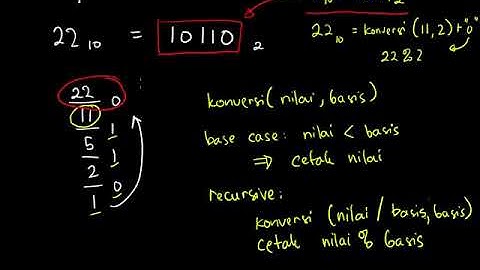 22₁₀ = 10110₂
22₁₀ = konversi (11, 2) + "0"
22 % 2
22 0
11 1
5 1
2 0
1
:
konversi( nilai , basis )
base case: nilai < basis
⇒ cetak nilai
recursive:
konversi (nilai / basis, basis)
cetak nilai % basis